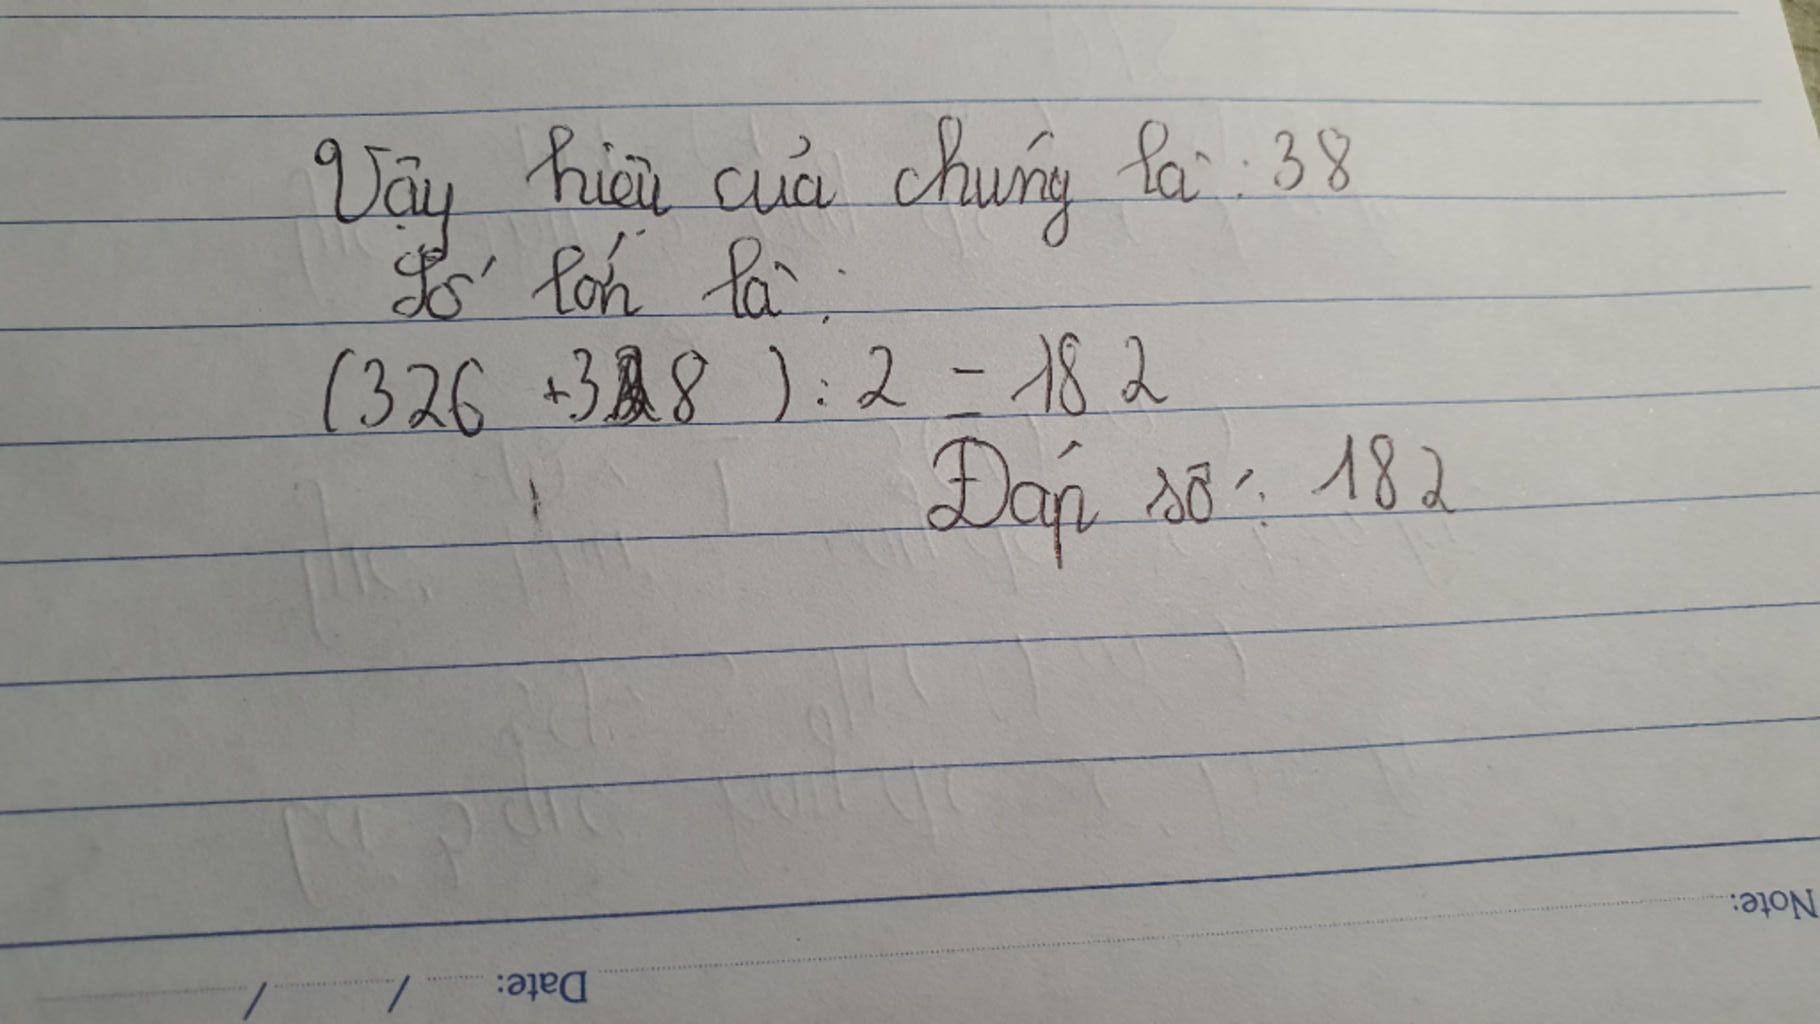 Vậy hiệu của chúng là: 38
Số lớn là:
(326 +38 ) : 2 = 182
Đáp số: 182
Note:
Date: / /